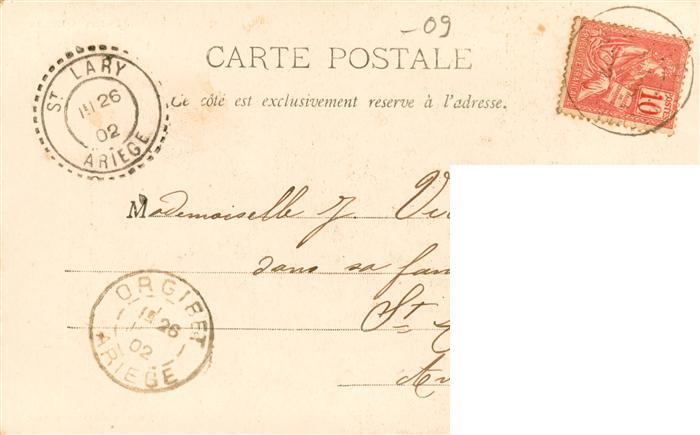 -09
CARTE POSTALE
Ce côté est exclusivement reserve à l'adresse.
ST LARY
26
02
ARIEGE
10
POSTES
Mademoiselle J.
dans sa
St
ORGIBET
26
02
ARIEGE